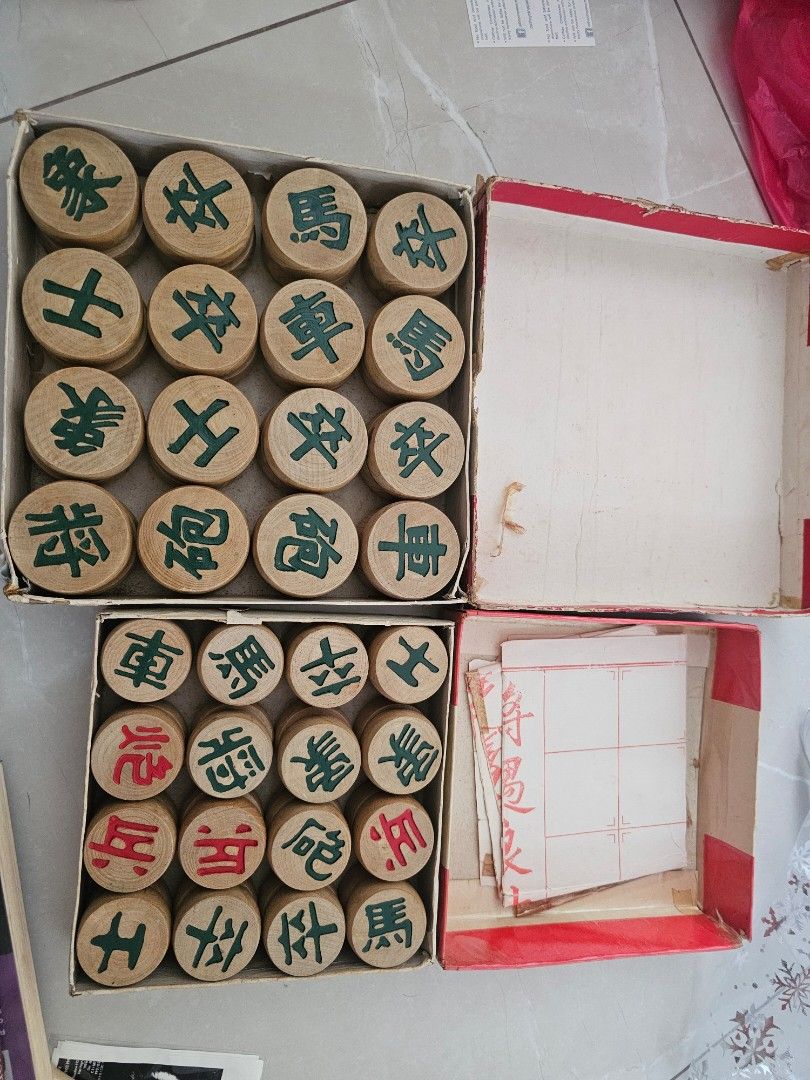 象 卒 馬 卒
士 卒 車 馬
象 士 卒 卒
將 砲 砲 車
車 馬 卒 士
炮 將 象 象
兵 兵 砲 兵
士 卒 卒 馬
遇良